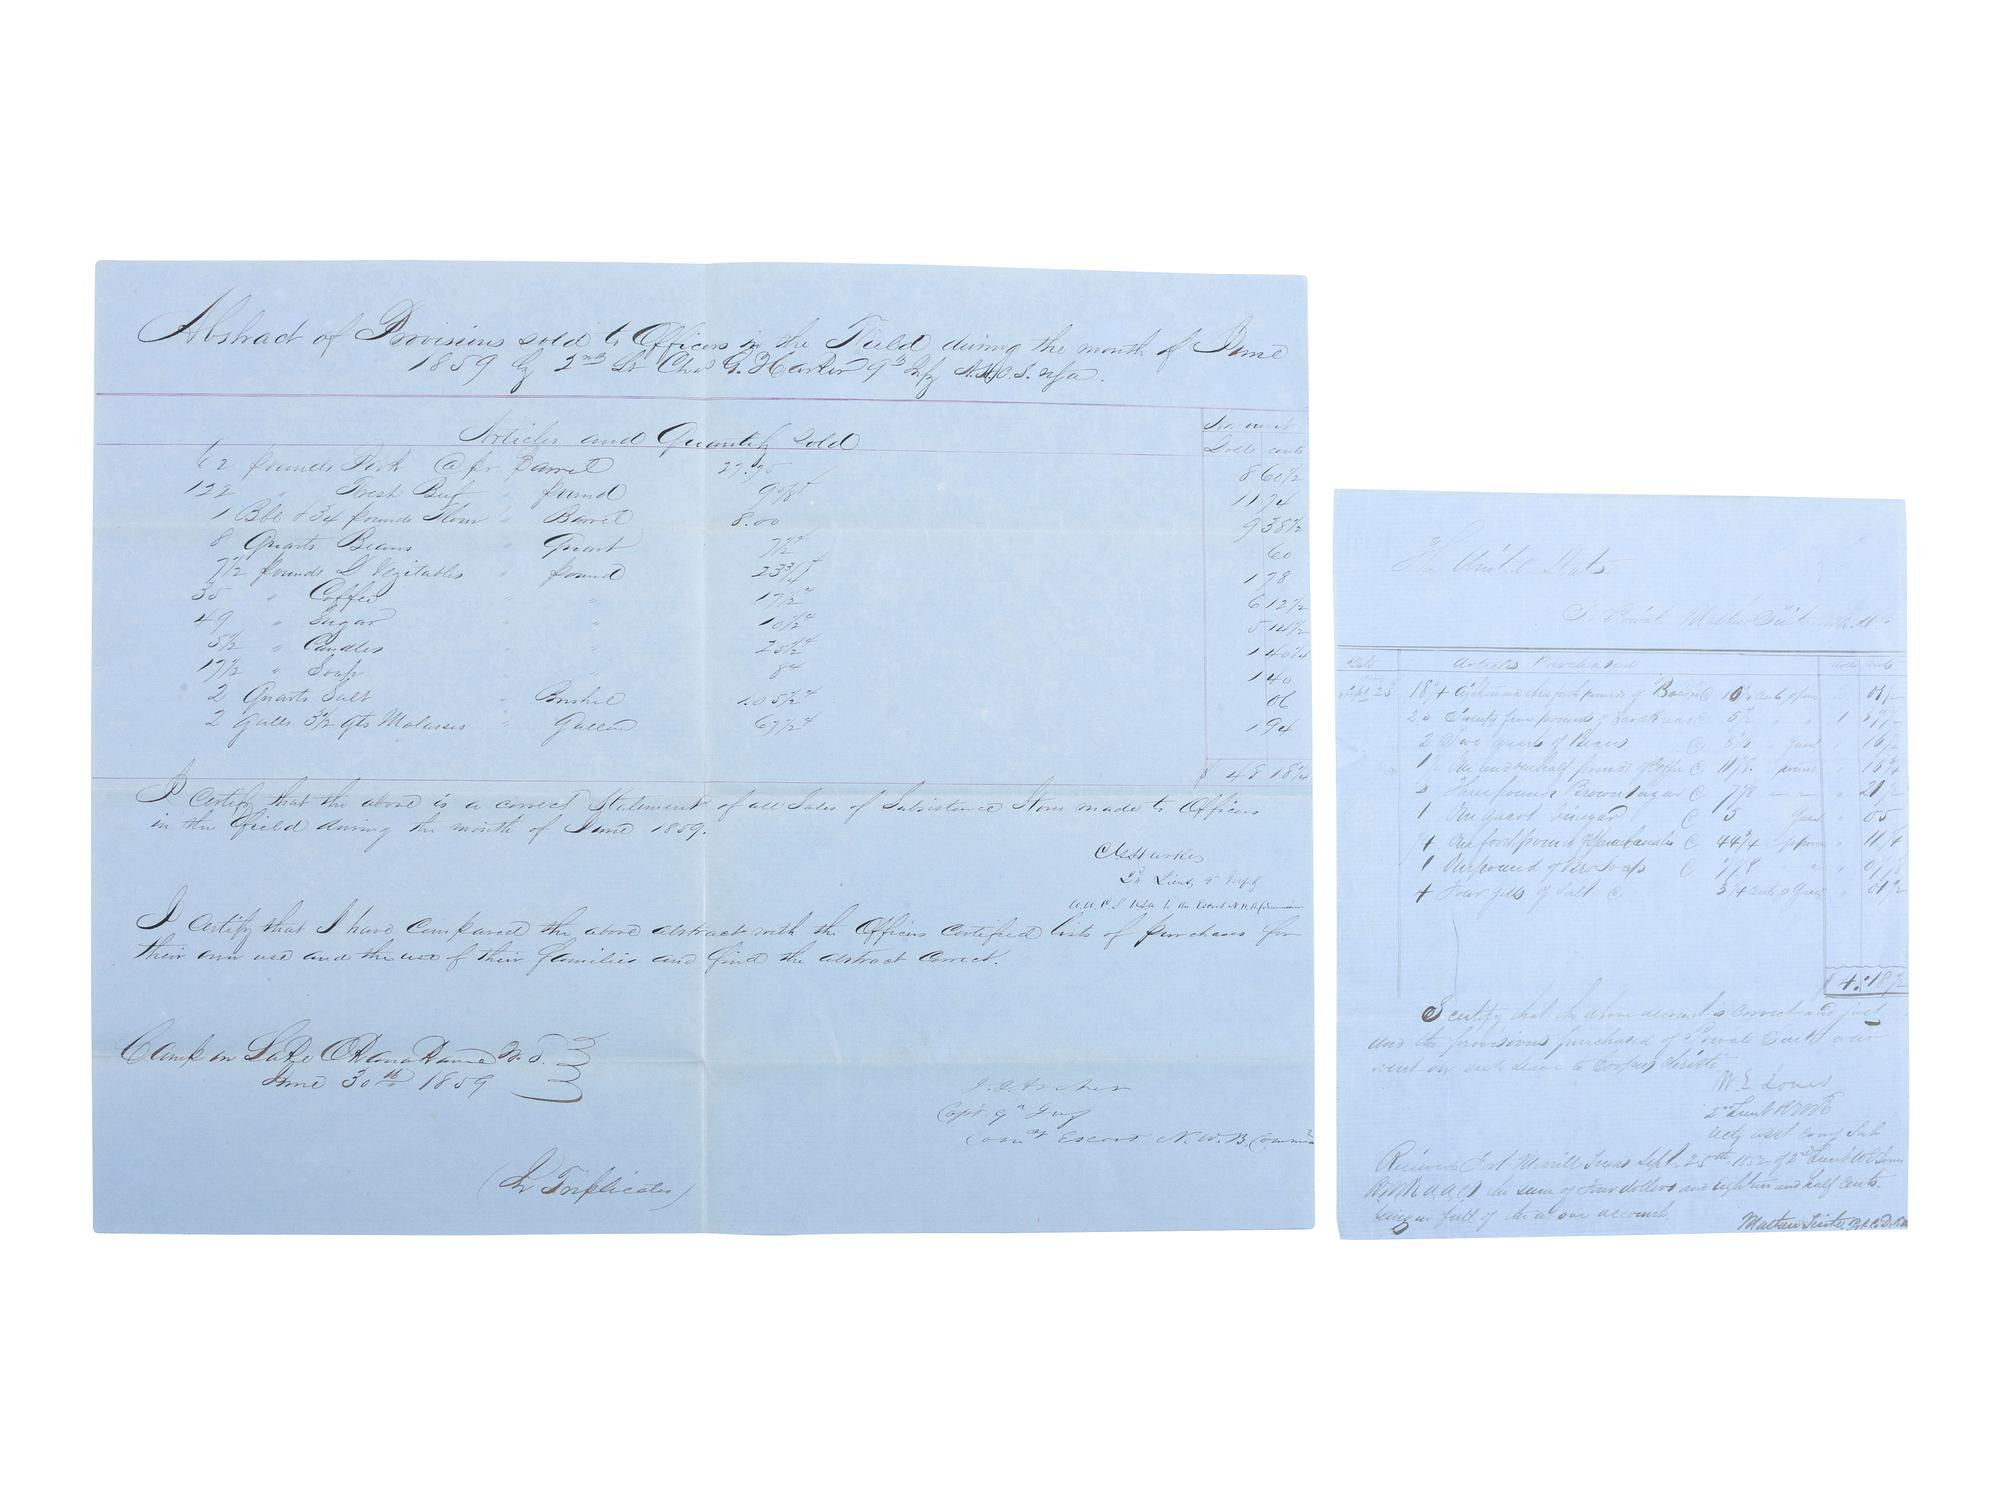 Abstract of Provisions sold to Officers in the Field during the month of June
1859 by 2nd Lt Chas G. Harker 9th Infy A.A.C.S. USA.
Articles and Quantity Sold
Amount
Dolls cents
62 pounds Pork @ pr Barrel 27.75 8 60 1/2
122 " Fresh Beef " pound 9 5/8 c 11 74
1 Bbl & 34 pounds Flour " Barrel 8.00 9 38 1/2
8 Quarts Beans " Quart 7 1/2 c 60
7 1/2 pounds D Vegitables " pound 23 3/4 c 1 78
35 " Coffee " " 17 1/2 c 6 12 1/2
49 " Sugar " " 10 1/2 c 5 14 1/2
5 1/2 " Candles " " 25 1/2 c 1 40 1/4
17 1/2 " Soap " " 8c 1 40
2 Quarts Salt " Bushel 1.05 1/2 c 06
2 Galls 3 1/2 qts Molasses " Gallon 67 1/2 c 1 94
$ 48 18 3/4
I certify that the above is a correct Statement of all Sales of Subsistence Stores made to Officers
in the field during the month of June 1859.
C.G. Harker
2d Lieut 9th Infy
A.A.C.S. USA to the Escort N.W.B. Commission
I certify that I have compared the above abstract with the Officers certified lists of purchases for
their own use and the use of their families and find the abstract correct.
Camp on Lake W.T.
June 30th 1859
J. J. Archer
Capt. 9th Inf
Comdg Escort N.W.B. Commis
(In Triplicates)
The United States
To Private Mathew R.M.
Date Articles Purchased dolls Cents
Sept 25 18 3/4 Eighteen and three forth pounds of Bacon @ 10 cents pr pound
25 Twenty five pounds of Hard Bread @ 5 1/2 " " 1 37 1/2
2 Two quarts of Beans @ " Quart " 16 1/2
1 1/2 One and one half pounds of Coffee @ 11 1/8 " pound " 16 3/4
3 Three pounds Brown Sugar @ 7 1/8 " " " 21 1/2
1 One quart Vinegar @ 5 " Quart " 05
1/4 One forth pound of Sperm Candles @ 44 3/4 " pr pound " 11 1/4
1 One pound of Bro Soap @ 7 1/8 " " 07 1/8
4 Four gills of Salt @ 3 1/4 cents p Quart " 01 1/2
$ 4.18 1/2
I certify that the above account is correct and just
and the provisions purchased of Private who
went on sick leave to Corpus Christi
W E Jones
2nd Lieut R M R
Actg asst Comy Sub
Received Fort Merrill Texas Sept. 25th 1852 of 2nd Lieut W E Jones
R.M.R. A.A.C.S. the sum of Four dollars and eighteen and half cents.
being in full of the above account.
Mathew Pvt Co D.